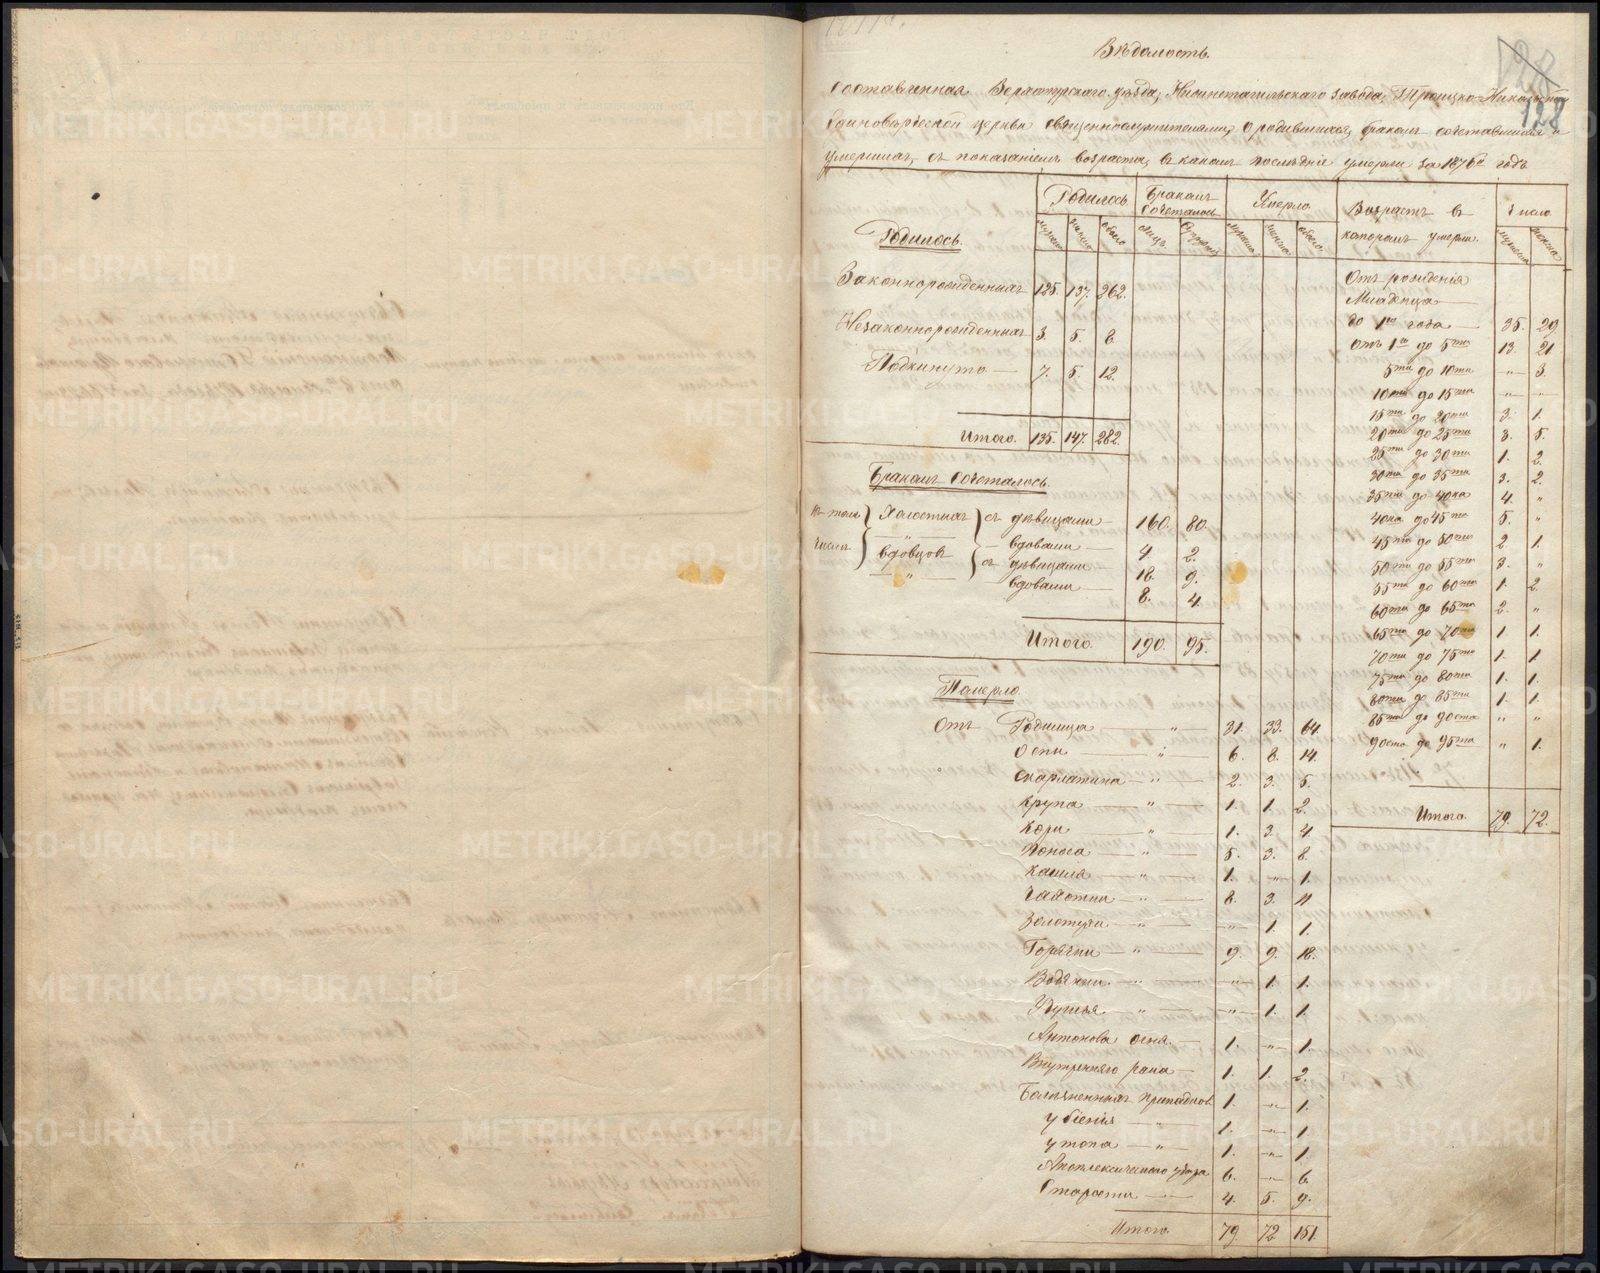 128
128
Вѣдомость
Составленная Верхотурскаго уѣзда, Нижнетагильскаго завода, Троицко-Николаевской
Единовѣрческой церкви священнослужителями, о родившихся, бракомъ сочетавшихся и
умершихъ, съ показаніемъ возраста, въ какомъ послѣдніе умерли за 1876й годъ
Родилось Бракомъ сочеталось Умерло Возрастъ въ которомъ умерли. Число
мужска женска обоего лицъ мужска женска обоего мужска женска
Родилось.
Законнорожденныхъ 125. 137. 262.
Незаконнорожденныхъ 3. 5. 8.
Подкинуто — 7. 5. 12.
Итого. 135. 147. 282.
Бракомъ Сочеталось.
въ томъ числѣ
Холостыхъ съ дѣвицами — 160. 80.
" — вдовами — 4. 2.
вдовцовъ съ дѣвицами — 18. 9.
" — вдовами — 8. 4.
Итого. 190. 95.
Померло.
Отъ Родимца — " — 31. 33. 64.
Оспы — " — 6. 8. 14.
Скарлатина — " — 2. 3. 5.
Крупа — " — 1. 1. 2.
Кори — " — 1. 3. 4.
Поноса — " — 5. 3. 8.
Кашля — " — 1. " 1.
Чахотки — " — 8. 3. 11
Золотухи — " — " 1. 1.
Горячки — " — 9. 9. 18.
Водяной — " — " 1. 1.
Удушья " — " 1. 1.
Антонова огня — 1. " 1.
Внутренняго рака — 1. 1. 2.
Болѣзненныхъ припадковъ 1. " 1.
убіенія — " — 1. " 1.
утопа — " — 1. " 1.
Апоплексическаго удара 6. — 6.
Старости — 4. 5. 9.
Итого 79. 72 151.
Отъ рожденія
Младенца
до 1го года — 35. 29
Отъ 1го до 5ти 13. 21
5ти до 10ти " 3.
10ти до 15ти " "
15ти до 20ти 3. 1.
20ти до 25ти 3. 5.
25ти до 30ти 1. 2.
30ти до 35ти 3. 2.
35ти до 40ка 4. "
40ка до 45ти 5. "
45ти до 50ти 2. 1.
50ти до 55ти 3. "
55ти до 60ти 1. 2.
60ти до 65ти 2. "
65ти до 70ти 1. 1.
70ти до 75ти 1. 1.
75ти до 80ти 1. 1.
80ти до 85ти 1. 1.
85ти до 90ста " "
90ста до 95ти " 1.
Итого. 79. 72.
METRIKI.GASO-URAL.RU